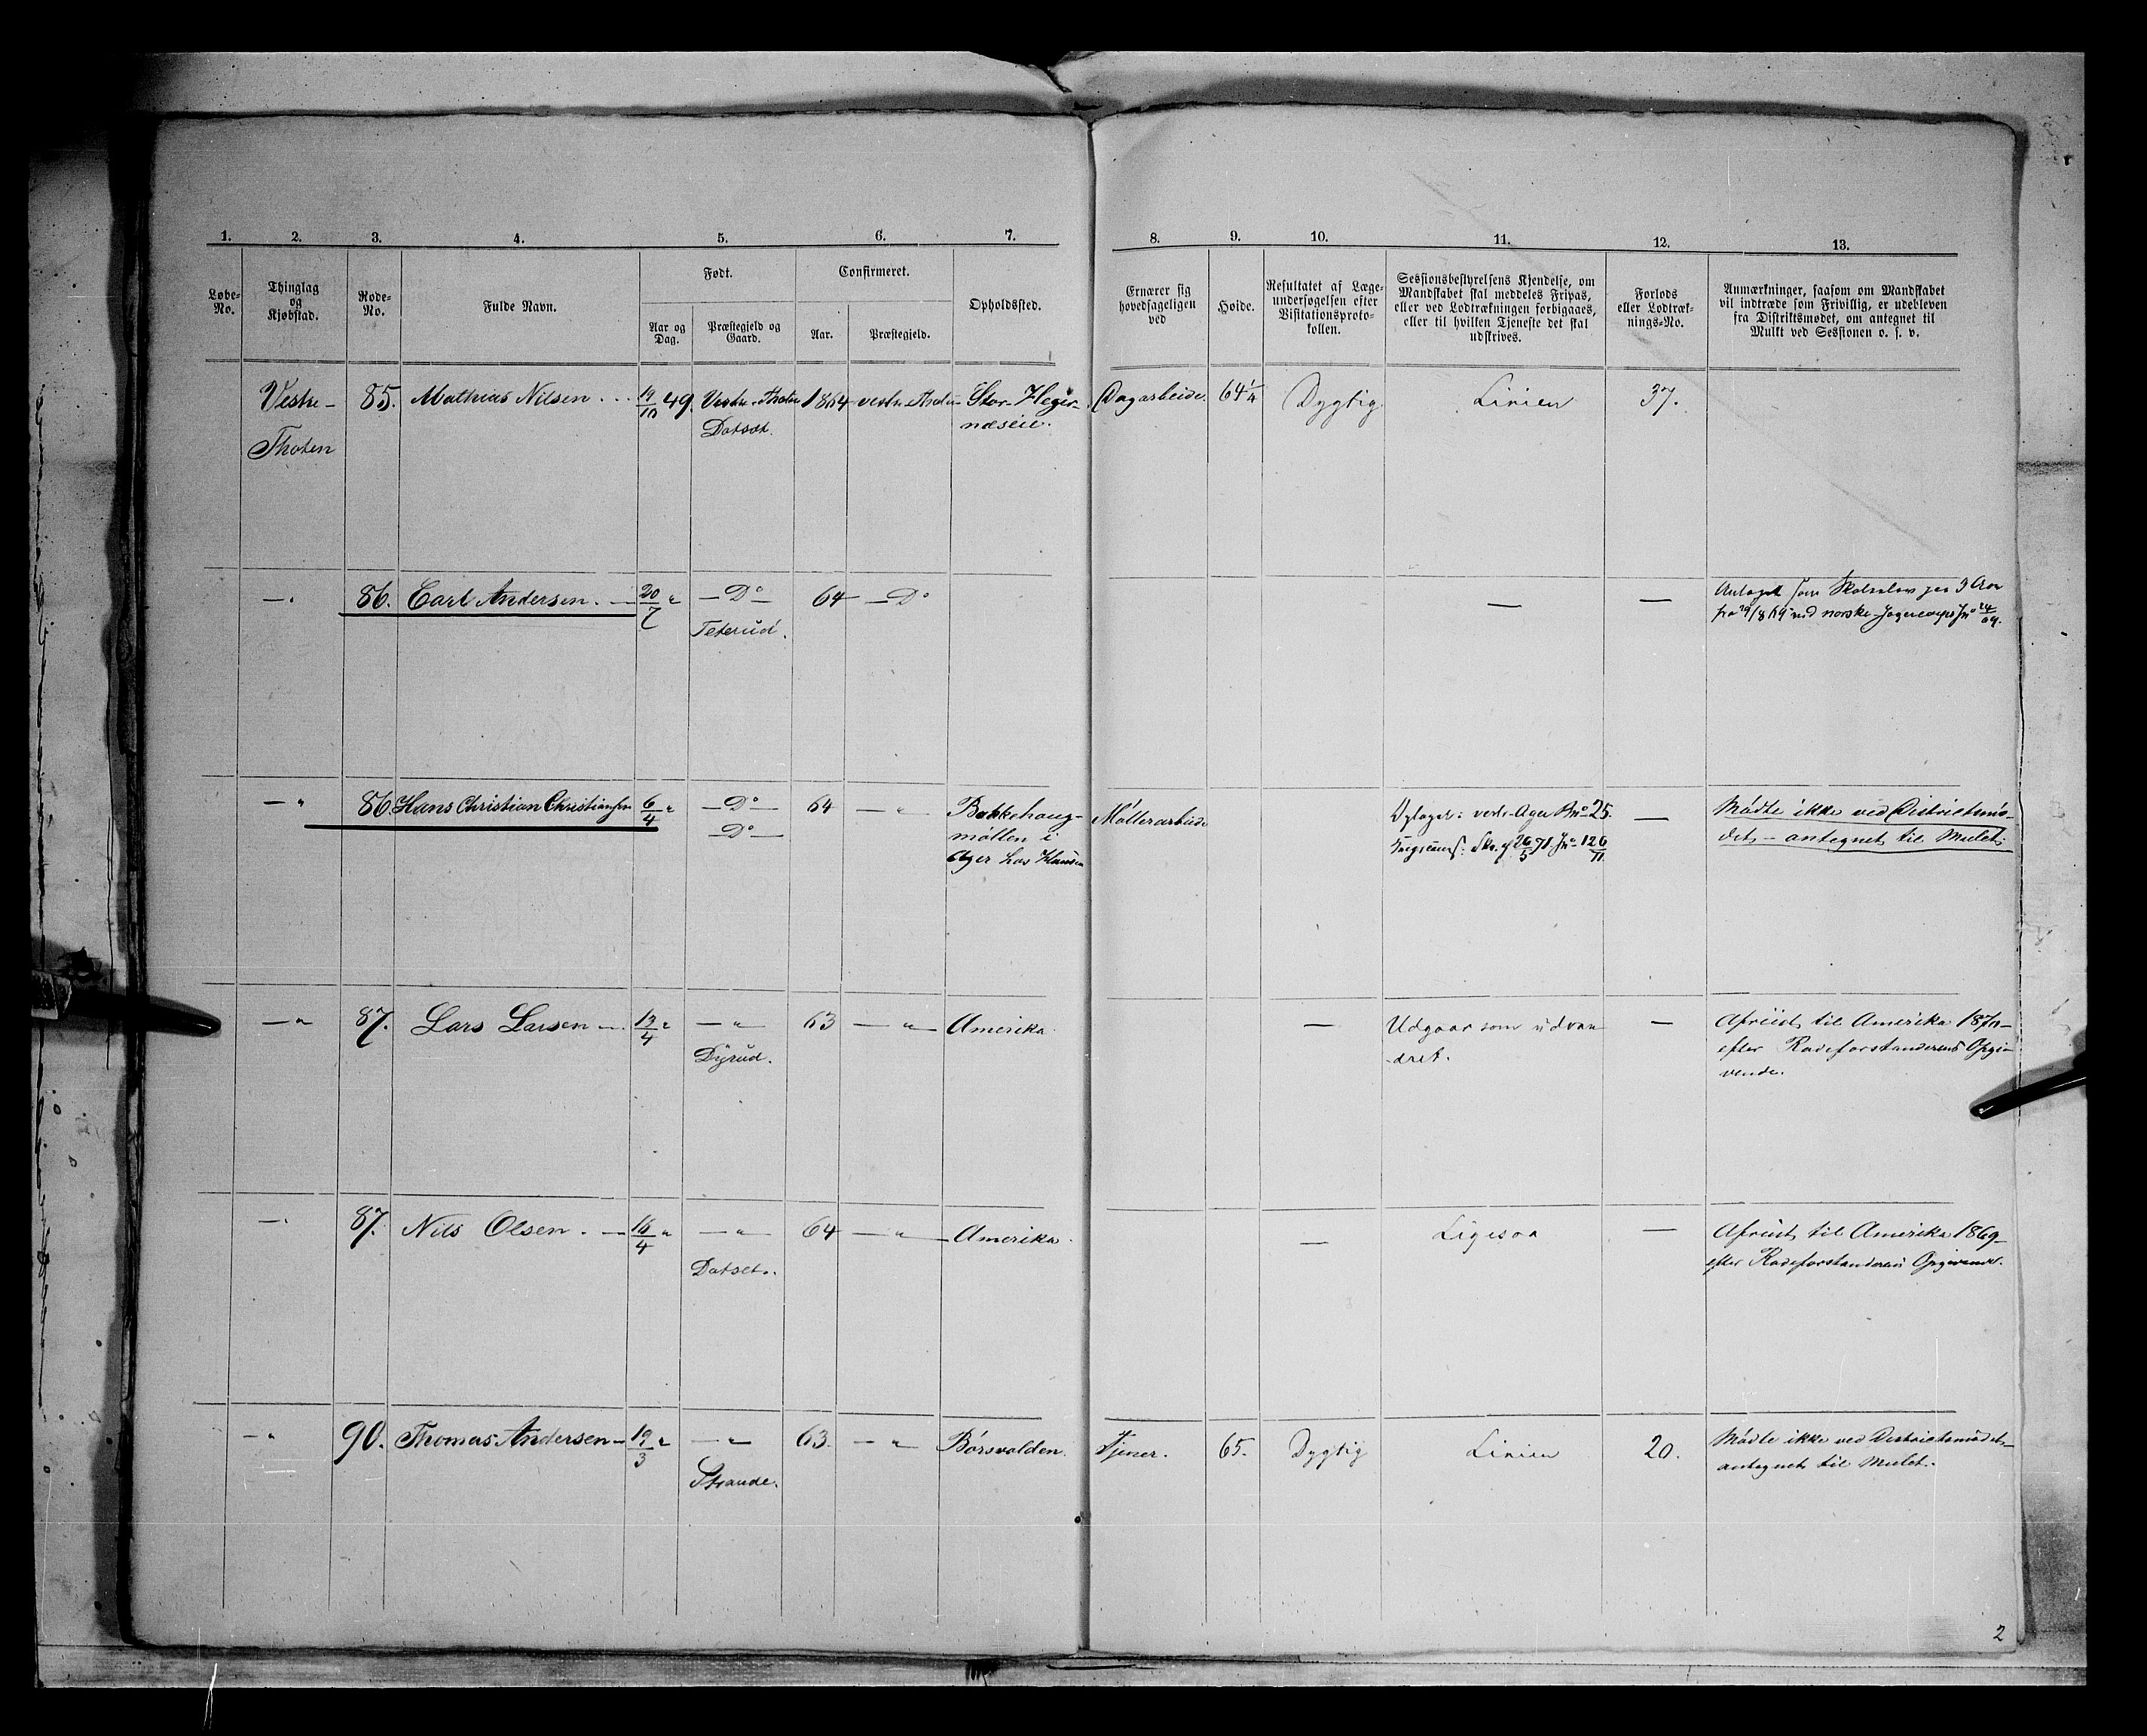 1. 2. 3. 4. 5. 6. 7. 8. 9. 10. 11. 12. 13.
Løbe-
No.
Thinglag
og
Kjøbstad.
Rode-
No.
Fulde Navn.
Født.
Aar og
Dag.
Præstegjeld og
Gaard.
Confirmeret.
Aar.
Præstegjeld.
Opholdssted.
Ernærer sig
hovedsageligen
ved
Høide.
Resultatet af Læge-
undersøgelsen efter
Visitationsproto-
kollen.
Sessionsbestyrelsens Kjendelse, om
Mandskabet skal meddeles Fripas,
eller ved Lodtrækningen forbigaaes,
eller til hvilken Tjeneste det skal
udskrives.
Forlods
eller Lodtræk-
nings-No.
Anmærkninger, saasom om Mandskabet
vil indtræde som Frivillig, er udebleven
fra Distriktsmødet, om antegnet til
Mulkt ved Sessionen o. s. v.
Vestre- 85. Mathias Nilsen 19/10 49. Vestre Thoten 1864 vestre Thoten Stor-Heger- Dagarbeide. 64 1/4 Dygtig Linien 37.
Thoten Datset. næseie.
—„ 86. Carl Andersen. — 20/7 „ — Do — 64 — Do — — Antaget som Skoleelev paa 3 Aar
Teterud. fra 29/8 69 ved norske Jægercorps
—„ 86. Hans Christian Christiansen 6/4 „ — Do — 64 — „ Bakkehaug- Møllerarbeide vestre Ager No 25. — Mødte ikke ved Districtsmø-
— Do — møllen i 26/5 71 126/71 det, — antegnet til Mulct.
Ager hos Hansen
—„ 87. Lars Larsen — 19/4 „ — „ — 63 — „ — Amerika — Udgaar som udvan- — Afreist til Amerika 1870 —
Dyrud. dret. efter Rodeforstanderens Opgi-
vende.
—„ 87. Nils Olsen. — 16/4 „ — „ — 64 — „ — Amerika. — Ligesaa — Afreist til Amerika 1869 —
Datset. efter Rodeforstanderens Opgivende.
—„ 90. Thomas Andersen — 19/3 „ — „ — 63. — „ — Børsvolden. Tjener. 65. Dygtig Linien 20. Mødte ikke ved Districtsmødet —
Strande. antegnet til Mulct.
2